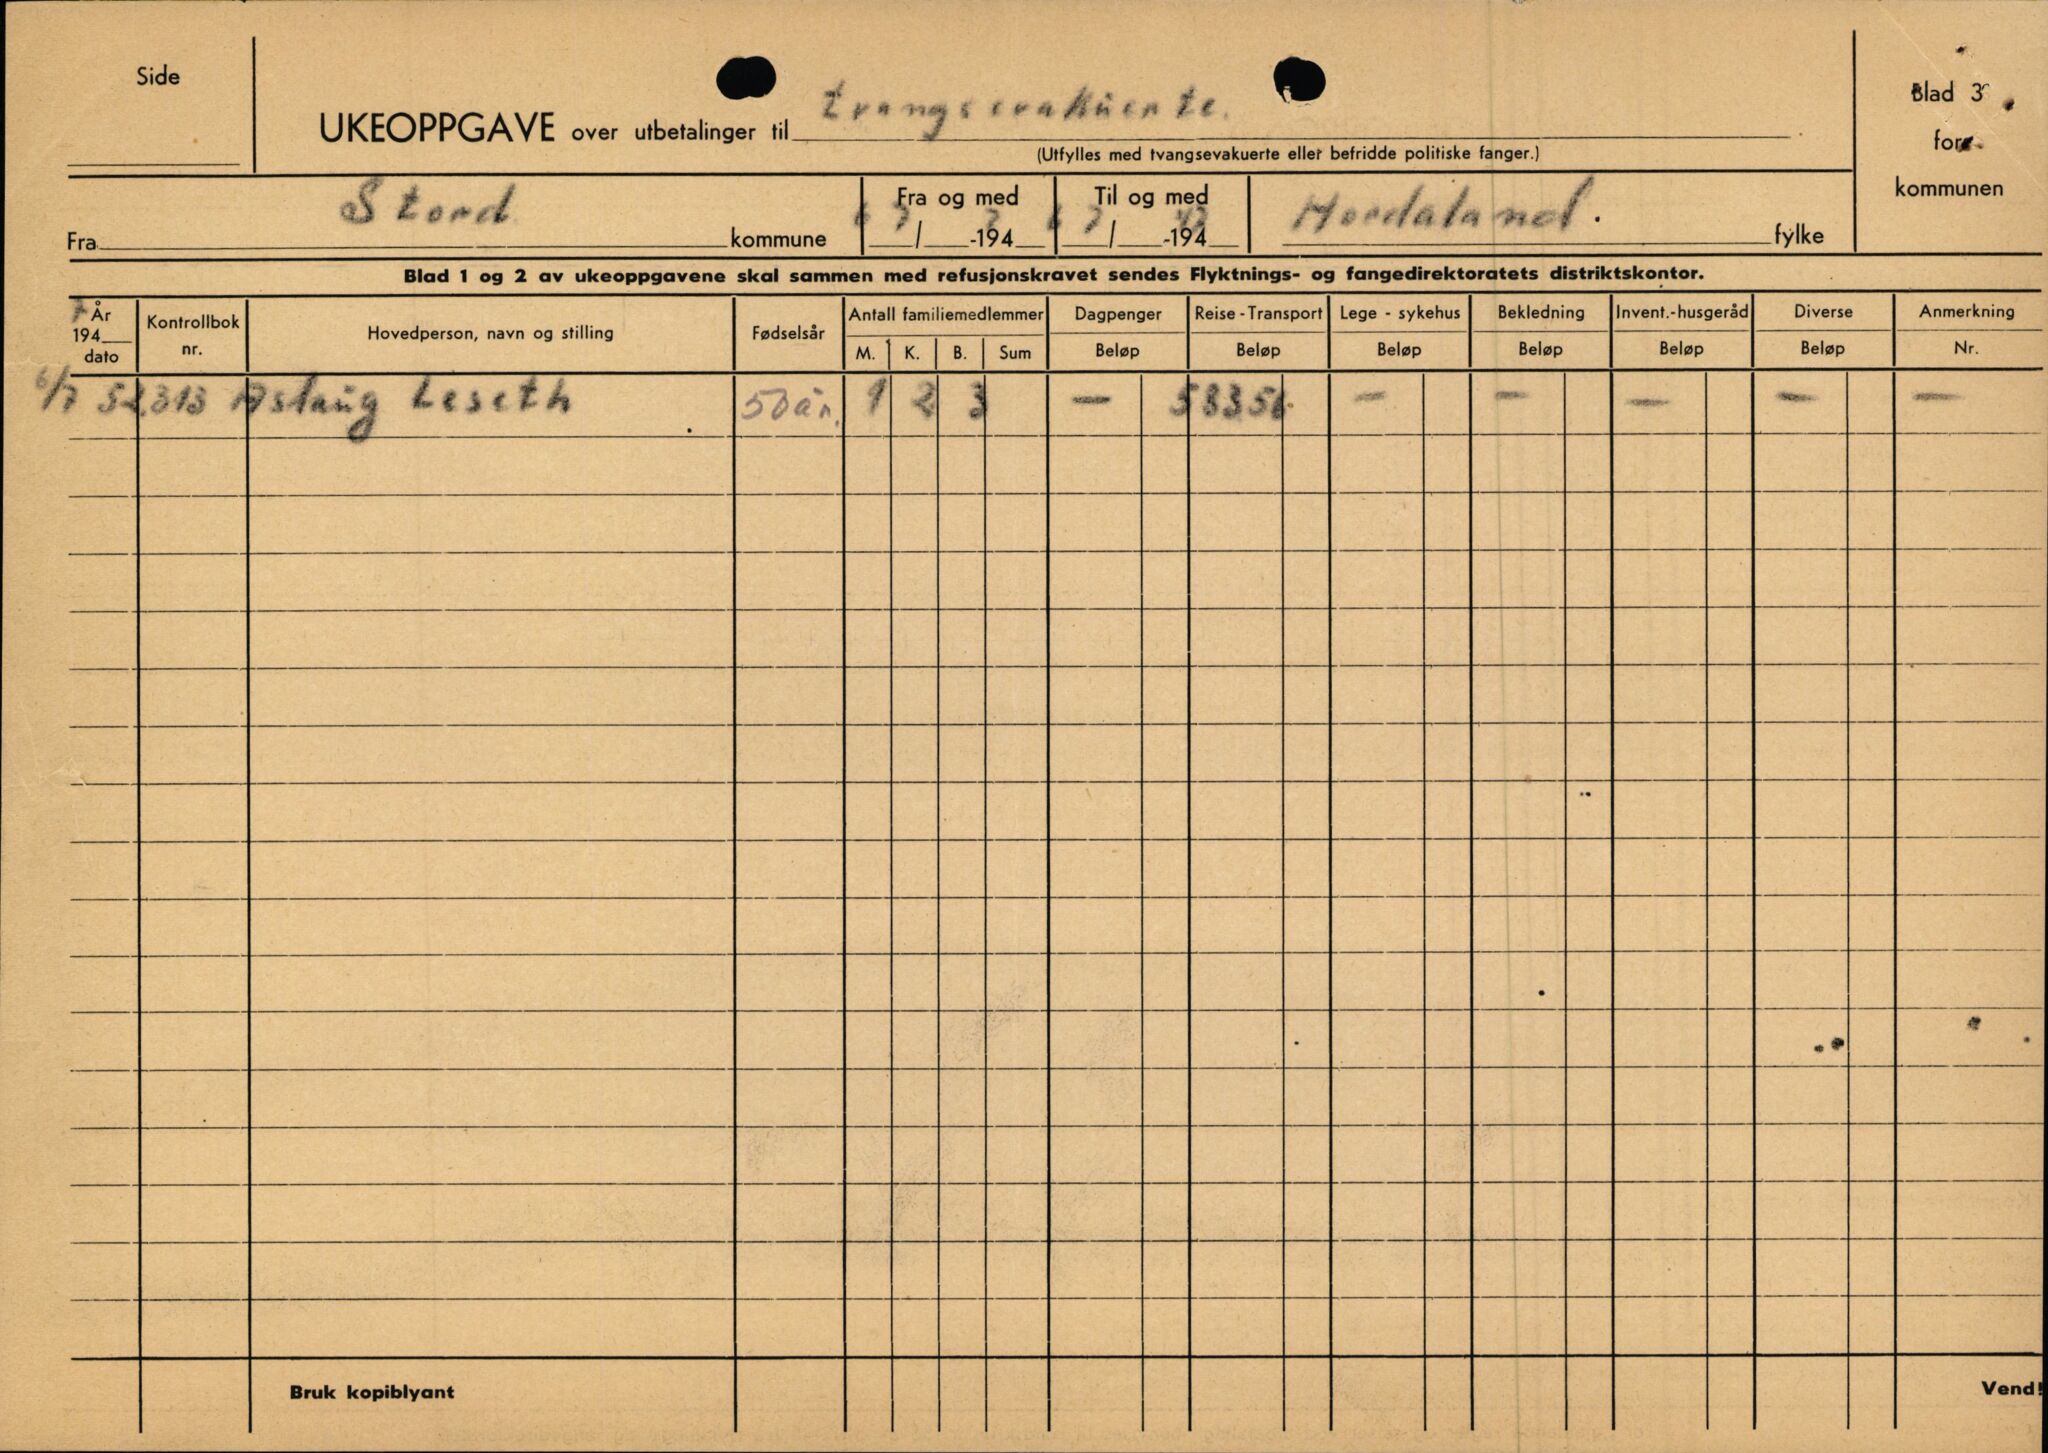 Side
UKEOPPGAVE over utbetalinger til tvangsevakuerte.
(Utfylles med tvangsevakuerte eller befridde politiske fanger.)
Blad 3
for
kommunen
Fra Stord kommune
Fra og med
6/7-1947
Til og med
6/7-1947
Hordaland. fylke
Blad 1 og 2 av ukeoppgavene skal sammen med refusjonskravet sendes Flyktnings- og fangedirektoratets distriktskontor.
År 1947 dato Kontrollbok nr. Hovedperson, navn og stilling Fødselsår Antall familiemedlemmer Dagpenger Reise - Transport Lege - sykehus Bekledning Invent.-husgeråd Diverse Anmerkning
M. K. B. Sum Beløp Beløp Beløp Beløp Beløp Beløp Nr.
6/7 52313 Aslaug Leseth 50 år. 1 2 3 — 533 56 — — — — —
Bruk kopiblyant
Vend!